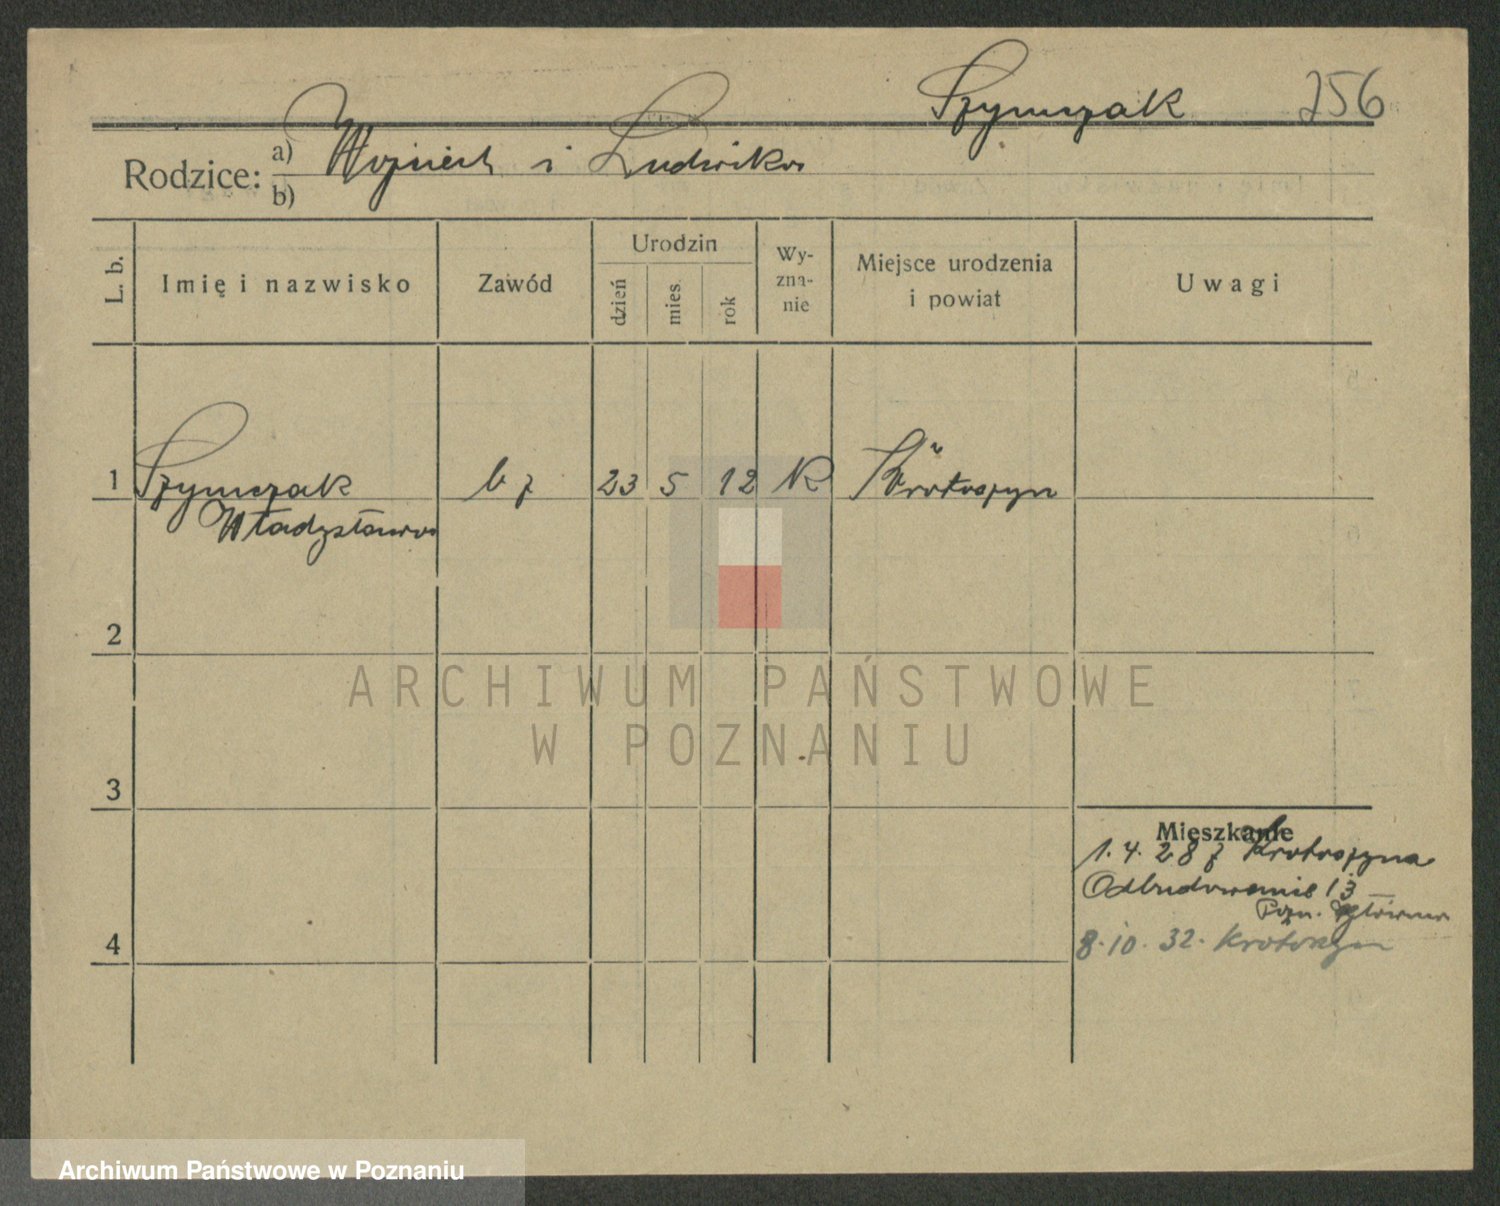 Szymczak 256
Rodzice: a) Wojciech i Ludwika
b)
L. b. Imię i nazwisko Zawód Urodzin dzień mies. rok Wy-zna-nie Miejsce urodzenia i powiat Uwagi
1 Szymczak b z 23 5 12 K Krotoszyn
Władysława
2
3
4
Mieszkanie
1.4.28 z Krotoszyna
Odbudowanie 13
Pozn. Główna
8.10.32. Krotoszyn
ARCHIWUM PAŃSTWOWE
W POZNANIU
Archiwum Państwowe w Poznaniu